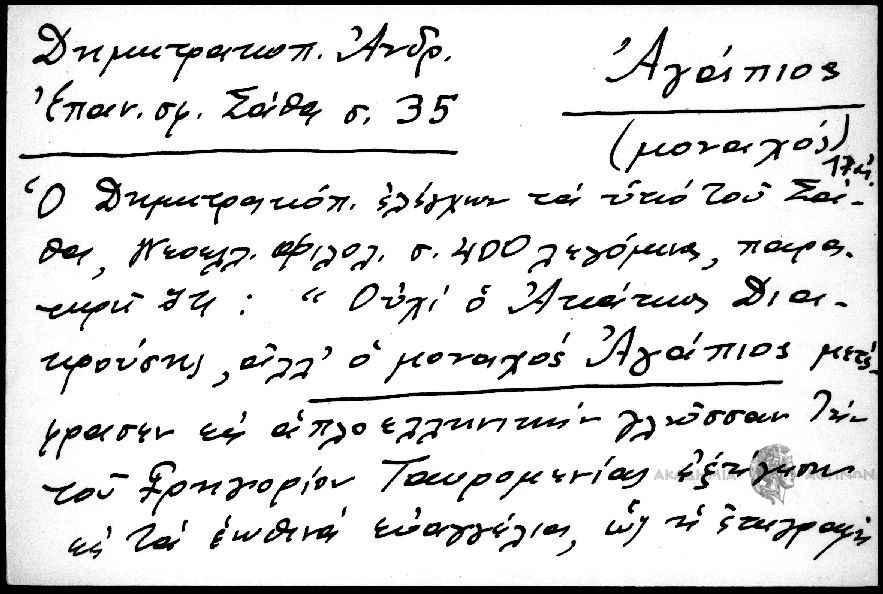 Δημητρακοπ. Ἀνδρ.
Ἐπαν. σφ. Σάθα σ. 35
Ἀγάπιος
(μοναχός)
17 αἰ.
Ὁ Δημητρακόπ. ἐλέγχων τὰ ὑπὸ τοῦ Σά-
θα, Νεοελλ. Φιλολ. σ. 400 λεγόμενα, παρα-
τηρεῖ ὅτι : “ Οὐχὶ ὁ Ἀκάκιος Δια-
κρούσης, ἀλλ’ ὁ μοναχὸς Ἀγάπιος μετέ-
φρασεν εἰς ἁπλοελληνικὴν γλῶσσαν τὴν
τοῦ Γρηγορίου Ταυρομενίας ἐξήγησιν
εἰς τὰ ἑωθινὰ εὐαγγέλια, ὡς ἡ ἐπιγραφὴ
ΑΚΑΔΗΜΙΑ ΑΘΗΝΩΝ